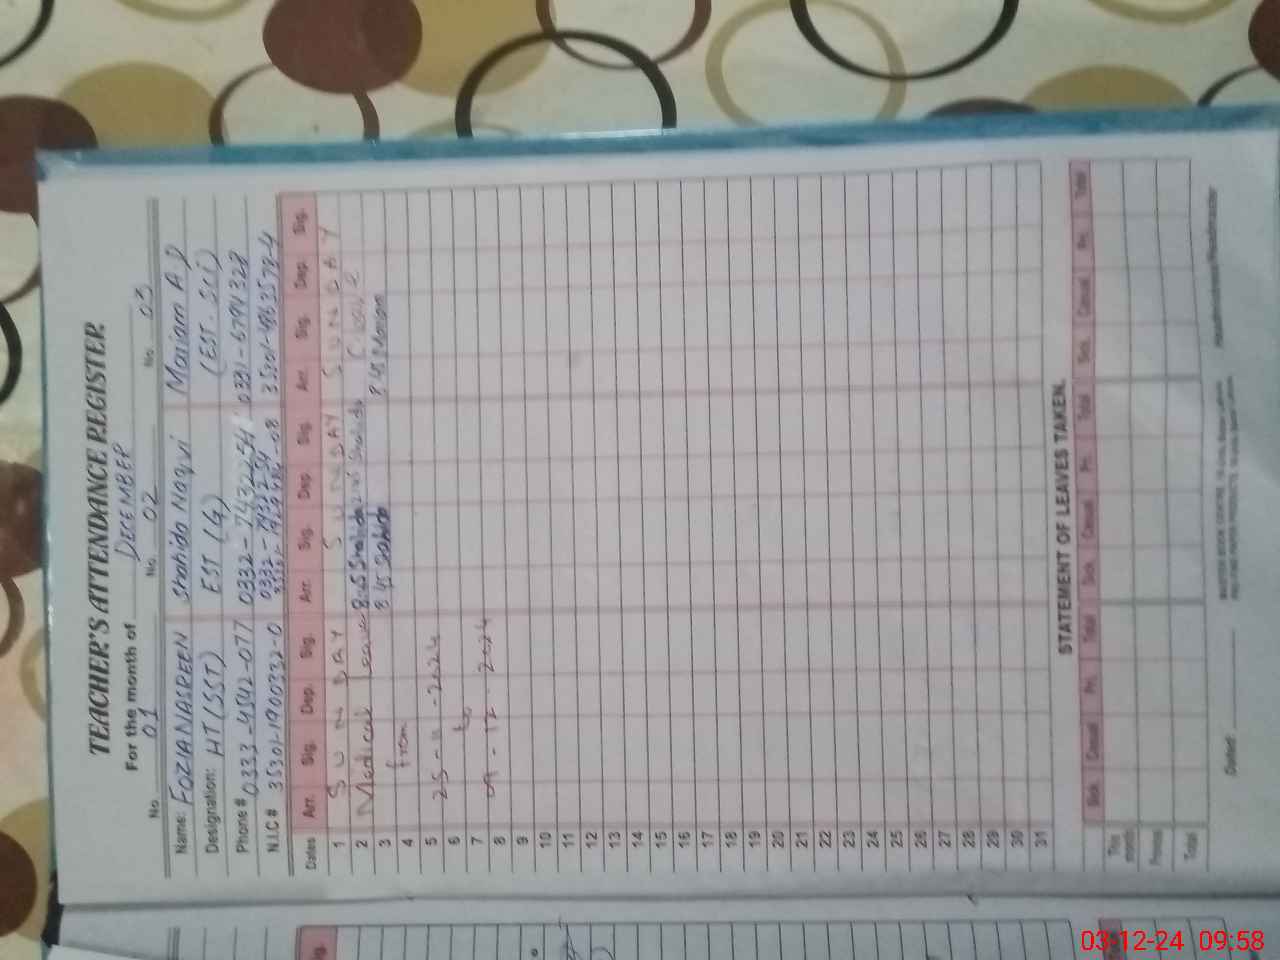 TEACHER'S ATTENDANCE REGISTER
For the month of DECEMBER
No 01 No. 02 No. 03
Name: FOZIA NASREEN Shahida Naqvi Mariam A D
Designation: HT(SST) EST (G) (EST. SCI)
Phone # 0333-4542-077 0332-7432254 0331-6794328
0332-7432254
N.I.C # 35301-1900332-0 35201-4863578-4
Dates Arr. Sig. Dep. Sig. Arr. Sig. Dep. Sig. Arr. Sig. Dep. Sig.
1 SUNDAY SUNDAY SUNDAY
2 Medical Leave 8:45 Shahida Shahida
3 8:45 Shahida 8:45 Mariam
4 from
5 25-11-2024
6 to
7
8 09-12-2024
9
10
11
12
13
14
15
16
17
18
19
20
21
22
23
24
25
26
27
28
29
30
31
STATEMENT OF LEAVES TAKEN.
Sick. Casual Pri. Total Sick. Casual Pri. Total Sick. Casual Pri. Total
This month
Previous
Total
Dated:
Sig.
03-12-24 09:58